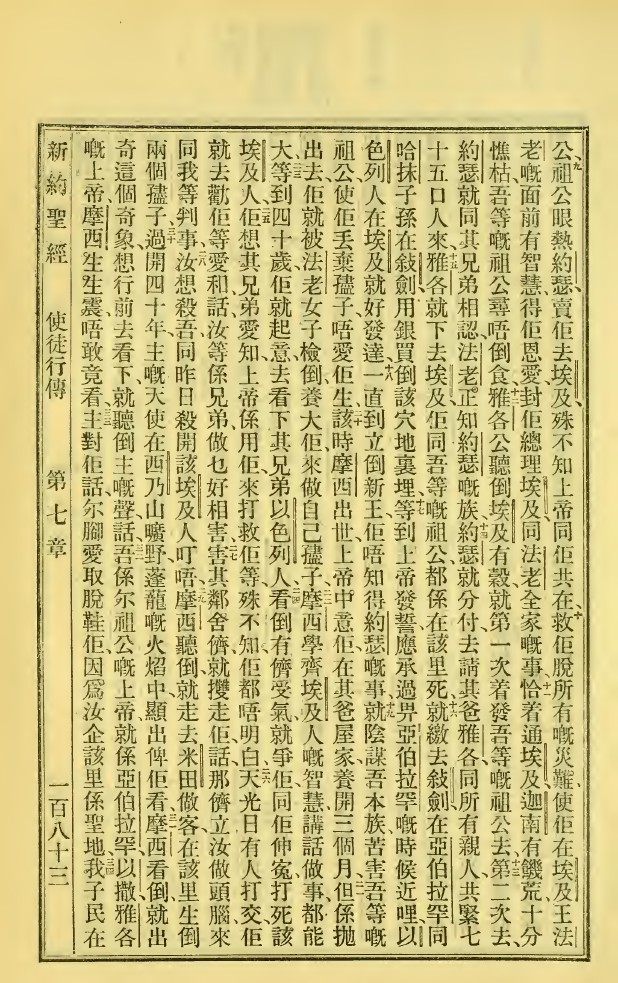 九公祖公眼熱約瑟賣佢去埃及殊不知上帝同佢共在十救佢脫所有嘅災難使佢在埃及王法
老嘅面前有智慧得佢恩愛封佢總理埃及同法老全家嘅事十一恰着通埃及迦南有饑荒十分
憔枯吾等嘅祖公尋唔倒食十二雅各公聽倒埃及有穀就第一次着發吾等嘅祖公去十三第二次去
約瑟就同其兄弟相認法老正知約瑟嘅族十四約瑟就分付去請其爸雅各同所有親人共緊七
十五口人來十五雅各就下去埃及佢同吾等嘅祖公都係在該里死十六就繳去敍劍在亞伯拉罕同
哈抹子孫在敍劍用銀買倒該穴地裏埋等十七到上帝發誓應承過畀亞伯拉罕嘅時候近哩以
色列人在埃及就好發達十八一直到立倒新王佢唔知得約瑟嘅事十九就陰謀吾本族苦害吾等嘅
祖公使佢丢棄孻子唔愛佢生二十該時摩西出世上帝中意佢在其爸屋家養開三個月二一但係拋
出去佢就被法老女子檢倒養大佢來做自己孻子二二摩西學齊埃及人嘅智慧講話做事都能
大二三等到四十歲佢就起意去看下其兄弟以色列人二四看倒有儕受氣就爭佢同佢伸寃打死該
埃及人二五佢想其兄弟愛知上帝係用佢來打救佢等殊不知佢都唔明白二六天光日有人打交佢
就去勸佢等愛和話汝等係兄弟做乜好相害二七害其鄰舍儕就㩳走佢話那儕立汝做頭腦來
同我等判事二八汝想殺吾同昨日殺開該埃及人叮唔二九摩西聽倒就走去米田做客在該里生倒
兩個孻子三十過開四十年主嘅天使在西乃山曠野蓬蘢嘅火焰中顯出俾佢看三一摩西看倒就出
奇這個奇象想行前去看下就聽倒主嘅聲話三二吾係尔祖公嘅上帝就係亞伯拉罕以撒雅各
嘅上帝摩西生生震唔敢竟看三三主對佢話尔腳愛取脫鞋佢因爲汝企該里係聖地三四我子民在
新約聖經 使徒行傳 第七章 一百八十三